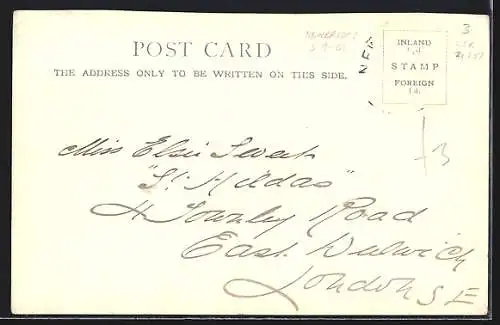 POST CARD
THE ADDRESS ONLY TO BE WRITTEN ON THIS SIDE.
INLAND
½d.
STAMP
FOREIGN
1d.
NEW
3
Miss Elsie Sweet
"St Hildas"
4 Townley Road
East Dulwich
London S E